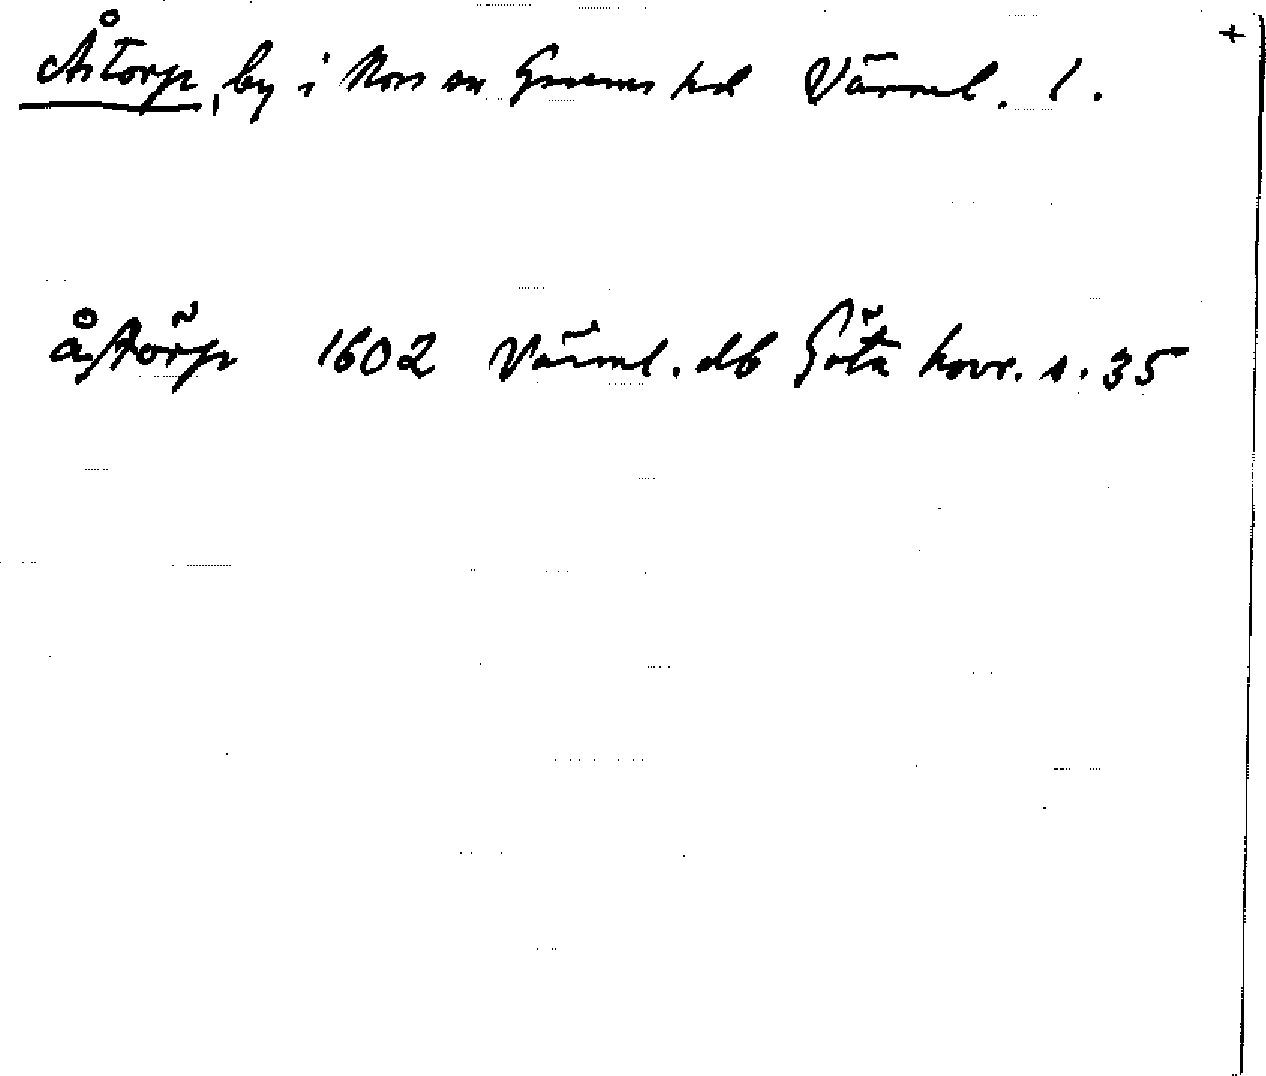 +
Åstorp, by i Nors sn Grums hd Värml. l.
åstörp 1602 Värml. db Göta hovr. s. 35